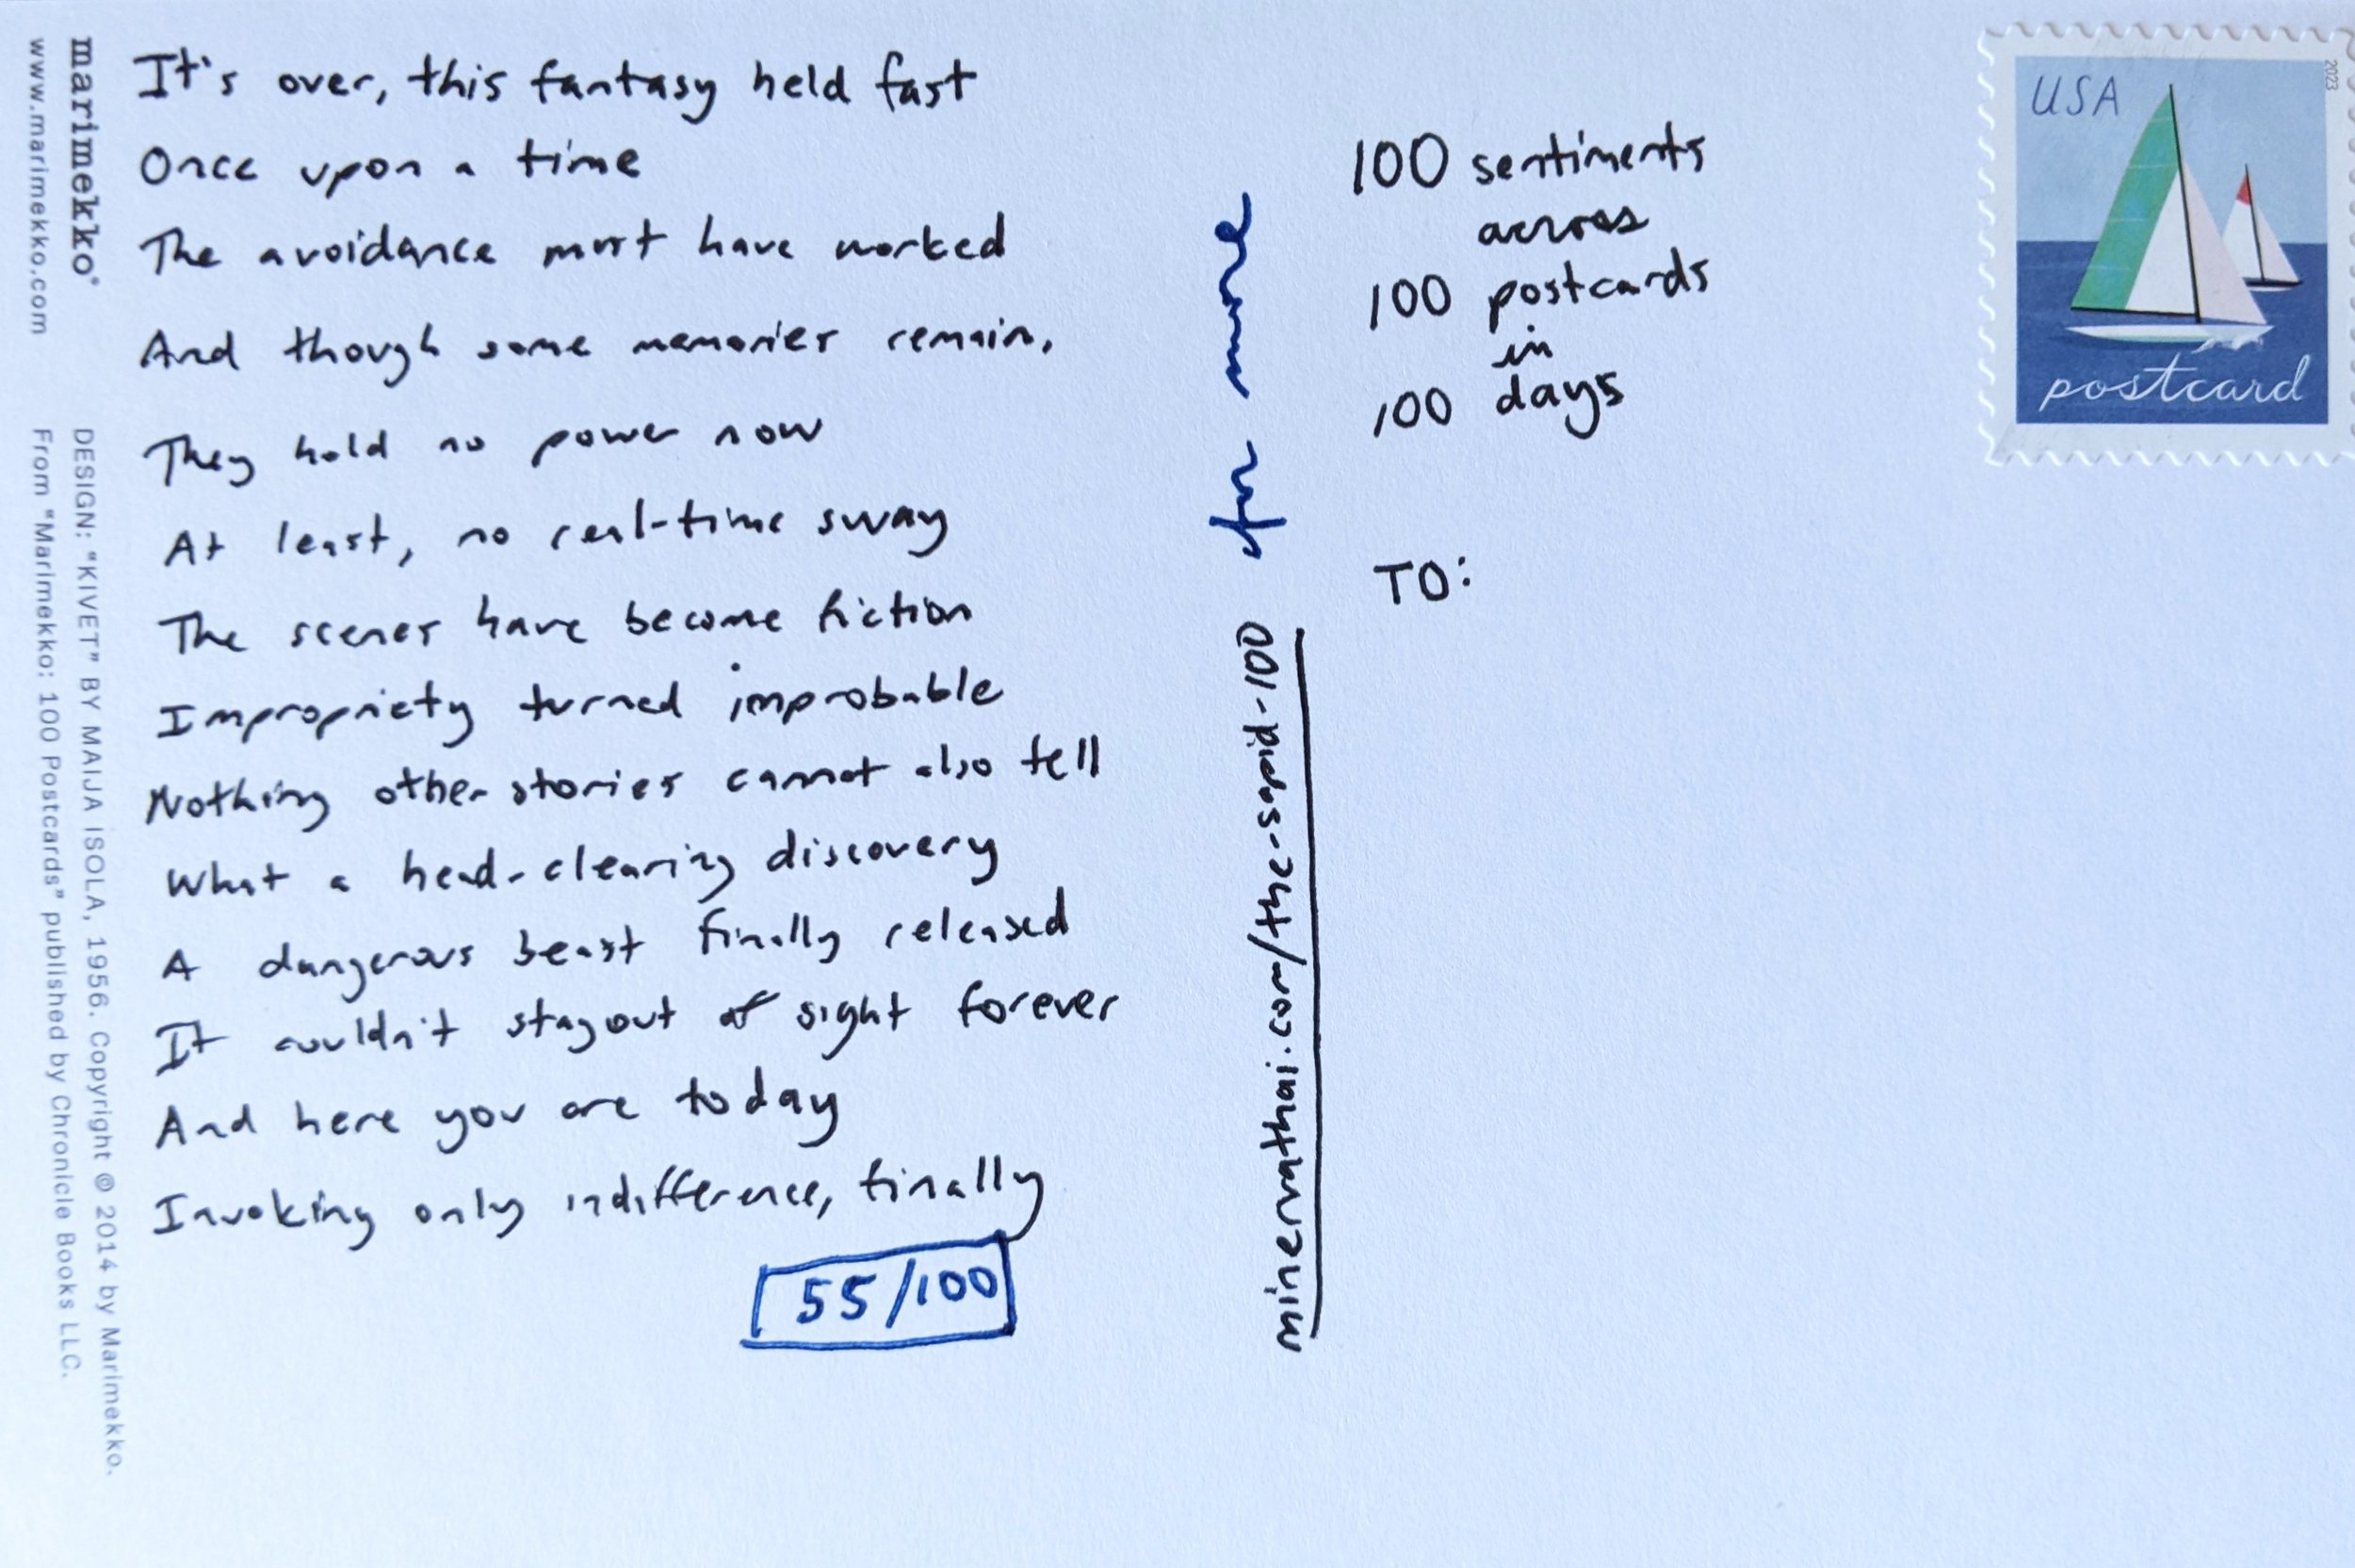 marimekko®
www.marimekko.com
DESIGN: "KIVET" BY MAIJA ISOLA, 1956. Copyright © 2014 by Marimekko.
From "Marimekko: 100 Postcards" published by Chronicle Books LLC.
It's over, this fantasy held fast
Once upon a time
The avoidance must have worked
And though some memories remain,
They hold no power now
At least, no real-time sway
The scenes have become fiction
Impropriety turned improbable
Nothing other stories cannot also tell
What a head-clearing discovery
A dangerous beast finally released
It couldn't stay out of sight forever
And here you are today
Invoking only indifference, finally
55/100
for more
minervathai.com/the-sapid-100
100 sentiments
across
100 postcards
in
100 days
TO:
USA
2023
postcard